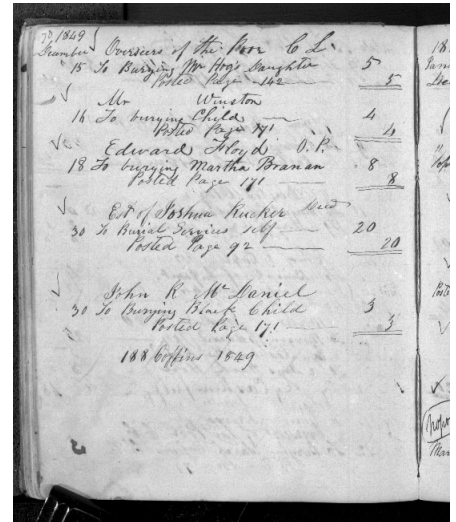 1849
December Overseers of the Poor C L
15 To Burying Mr Hog's Daughter 5
Posted Page 142 5
Mr Winston
16 To burying Child 4
Posted Page 171 4
Edward Floyd O. P.
18 To burying Martha Branan 8
Posted Page 171 8
Est of Joshua Rucker Decd
30 To Burial Services self 20
Posted Page 92 20
John R McDaniel
30 To Burying Black Child 3
Posted Page 171 3
188 Coffins 1849